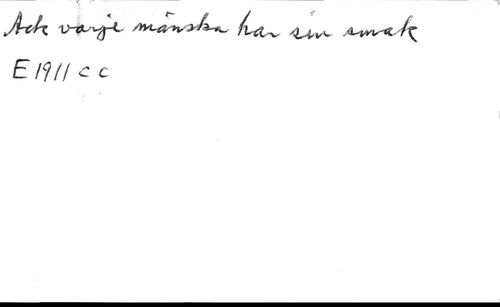 Ack varje mänska har sin smak
E 1911 c c